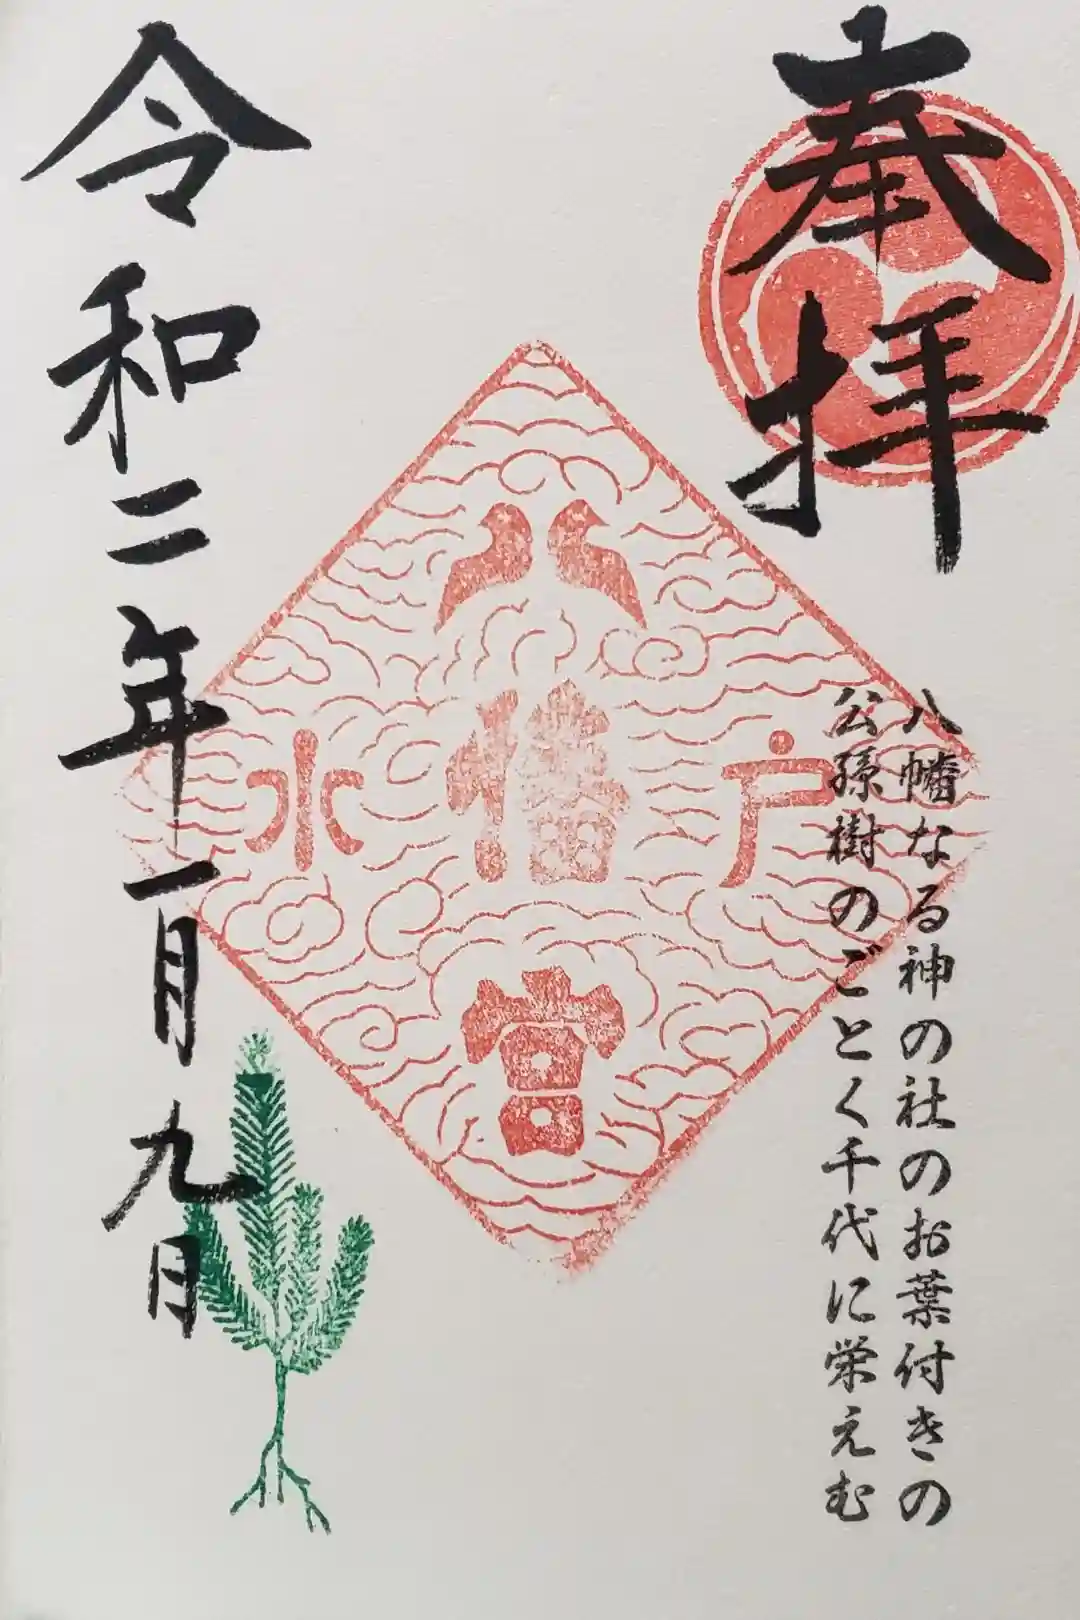 奉拝
八幡なる神の社のお葉付きの
公孫樹のごとく千代に栄えむ
水戸
八幡宮
令和二年一月九日